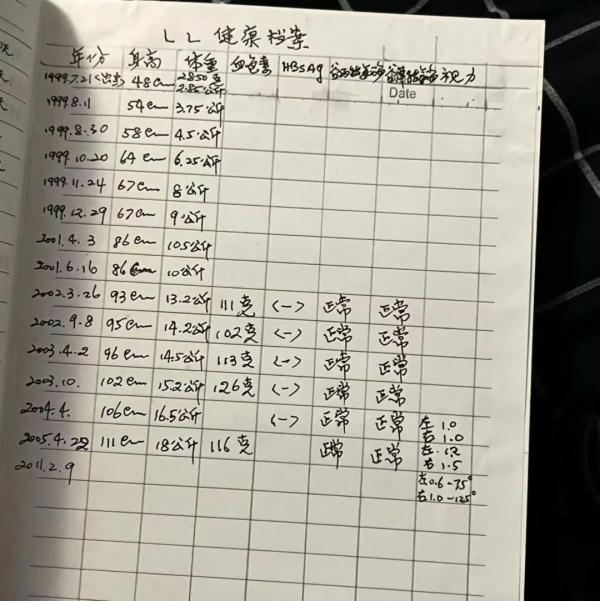 LL 健康档案
年份 身高 体重 血色素 HBSAg 谷丙转氨酶 视力
Date
1999.7.21<出生> 48cm 2850克
2.85公斤
1999.8.11 54cm 3.75公斤
1999.8.30 58cm 4.5公斤
1999.10.20 64cm 6.25公斤
1999.11.24 67cm 8公斤
1999.12.29 67cm 9公斤
2001.4.3 86cm 10.5公斤
2001.6.16 86cm 10公斤
2002.3.26 93cm 13.2公斤 111克 <-> 正常 正常
2002.9.8 95cm 14.2公斤 102克 <-> 正常 正常
2003.4.2 96cm 14.5公斤 113克 <-> 正常 正常
2003.10. 102cm 15.2公斤 126克 <-> 正常 正常
2004.4. 106cm 16.5公斤 <-> 正常 正常 左 1.0
右 1.0
2005.4.22 111cm 18公斤 116克 正常 正常 左 1.2
右 1.5
2011.2.9 左0.6-75°
右1.0-125°